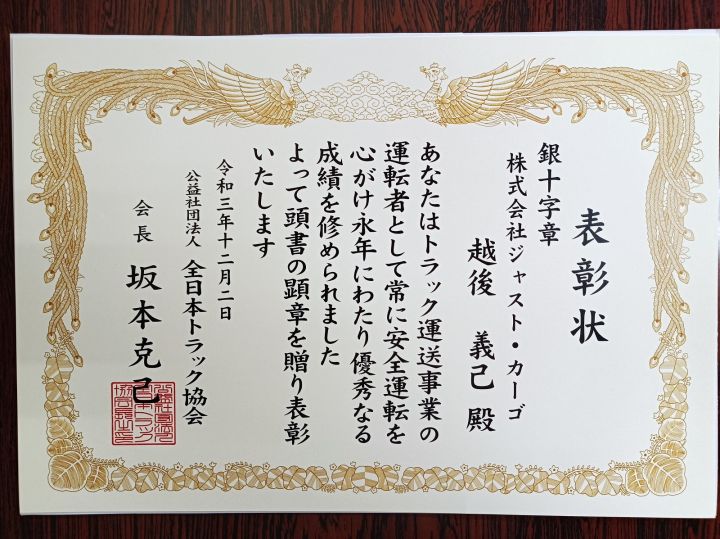 表彰状
銀十字章
株式会社ジャスト・カーゴ
越後 義己 殿
あなたはトラック運送事業の
運転者として常に安全運転を
心がけ永年にわたり優秀なる
成績を修められました
よって頭書の顕章を贈り表彰
いたします
令和三年十二月二日
公益社団法人 全日本トラック協会
会長 坂本克己